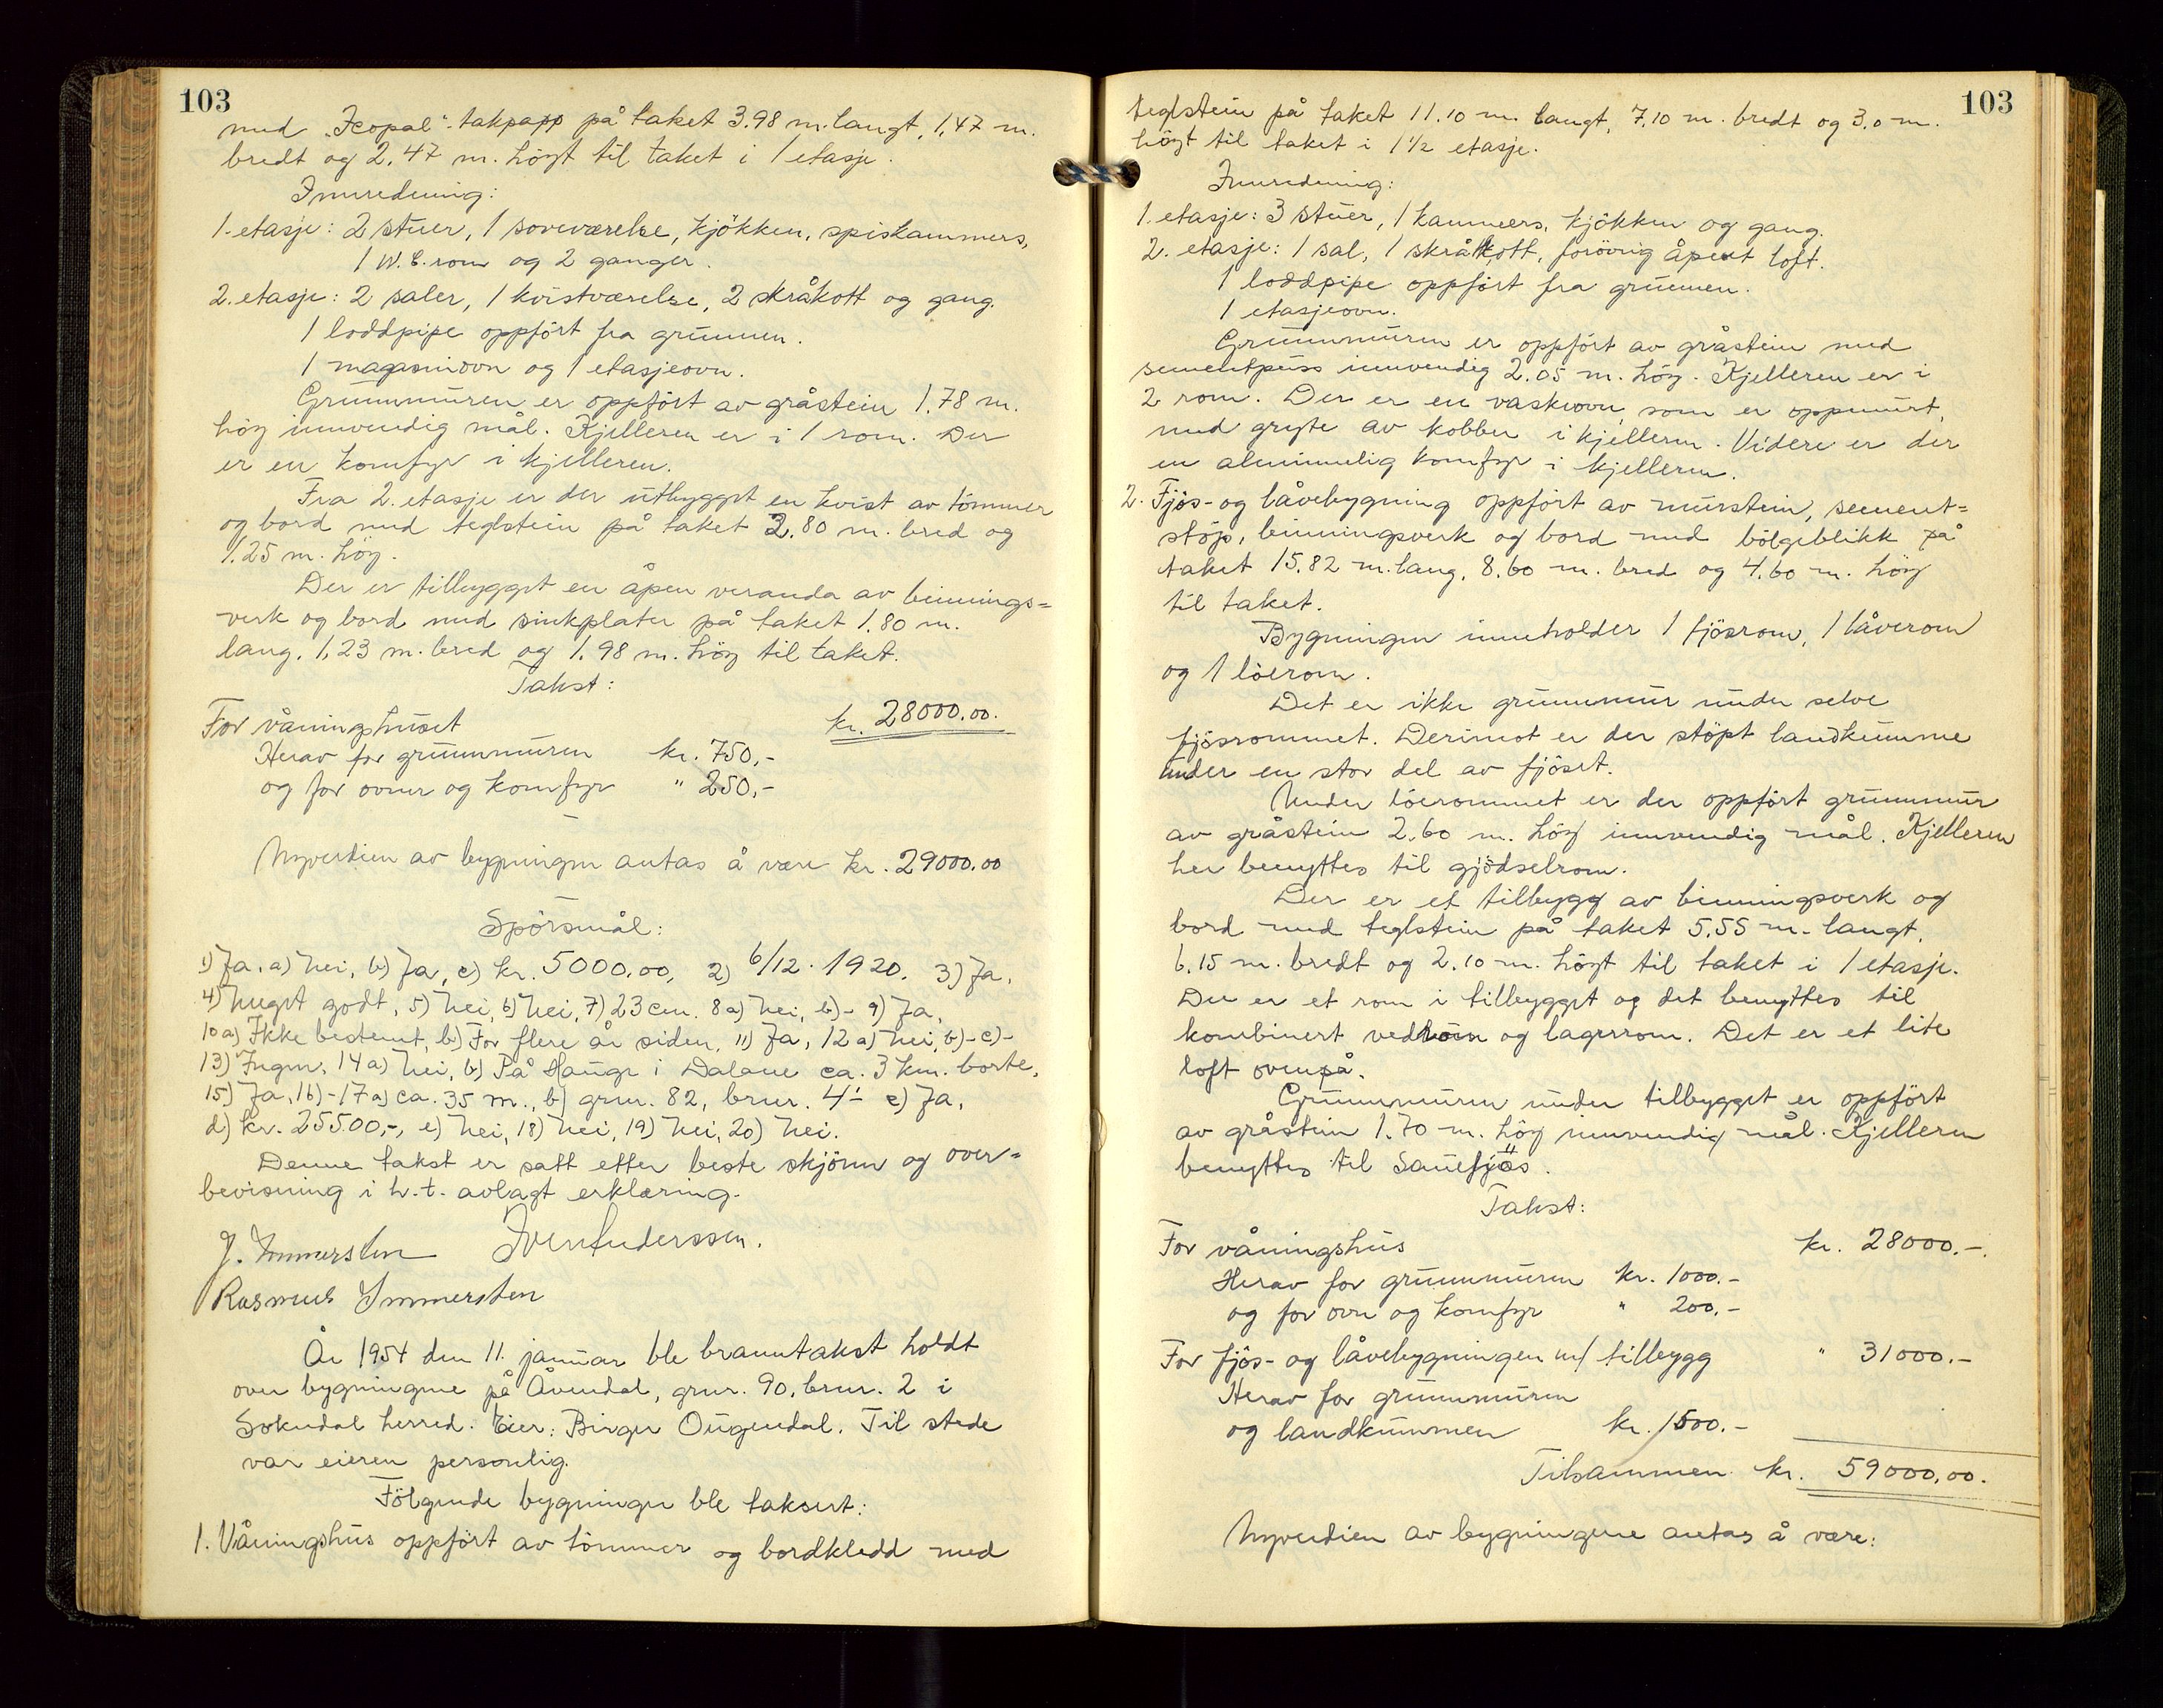 103
med "Icopal"-takpapp på taket 3.98 m. langt, 1,47 m.
bredt og 2.47 m. höyt til taket i 1 etasje.
Innredning:
1. etasje: 2 stuer, 1 soveværelse, kjökken, spiskammers,
1 W.C. rom og 2 ganger.
2. etasje: 2 saler, 1 kvistværelse, 2 skråkott og gang.
1 loddpipe oppfört fra grunnen.
1 magasinovn og 1 etasjeovn.
Grunnmuren er oppfört av gråstein 1.78 m.
höy innvendig mål. Kjelleren er i 1 rom. Der
er en komfyr i kjelleren.
Fra 2. etasje er der utbygget en kvist av tömmer
og bord med teglstein på taket 2.80 m. bred og
1.25 m. höy.
Der er tilbygget en åpen veranda av binnings=
verk og bord med sinkplater på taket 1.80 m.
lang, 1,23 m. bred og 1.98 m. höy til taket.
Takst:
For våningshuset kr. 28000.00.
Herav for grunnmuren kr. 750,-
og for ovner og komfyr " 250,-
Nyverdien av bygningen antas å være kr. 29000.00
Spörsmål:
1) Ja, a) Nei, b) Ja, c) kr. 5000.00, 2) 6/12. 1920. 3) Ja,
4) Meget godt, 5) Nei, 6) Nei, 7) 23 cm. 8 a) Nei, b)- 9) Ja,
10 a) Ikke bestemt, b) For flere år siden, 11) Ja, 12 a) Nei, b)- c)-
13) Ingen, 14 a) Nei, b) På Hauge i Dalane ca. 3 km. borte,
15) Ja, 16)- 17 a) ca. 35 m., b) grnr. 82, brnr. 4- c) Ja,
d) kr. 25500,-, e) Nei, 18) Nei, 19) Nei, 20) Nei.
Denne takst er satt etter beste skjönn og over=
bevisning i h. t. avlagt erklæring.
J. Immerstein Iver Anderssen.
Rasmus Immerstein
År 1954 den 11. januar ble branntakst holdt
over bygningene på Åvendal, grnr. 90, brnr. 2 i
Sokndal herred. Eier: Birger Ougendal. Til stede
var eieren personlig.
Fölgende bygninger ble taksert:
1. Våningshus oppfört av tömmer og bordkledd med
103
teglstein på taket 11.10 m. langt, 7.10 m. bredt og 3.0 m.
höyt til taket i 1 1/2 etasje.
Innredning:
1. etasje: 3 stuer, 1 kammers, kjökken og gang.
2. etasje: 1 sal, 1 skråkott, forövrig åpent loft.
1 loddpipe oppfört fra grunnen.
1 etasjeovn.
Grunnmuren er oppfört av gråstein med
sementpuss innvendig 2.05 m. höy. Kjelleren er i
2 rom. Der er en vaskeovn som er oppmurt,
med gryte av kobber i kjelleren. Videre er der
en alminnelig komfyr i kjelleren.
2. Fjös- og låvebygning oppfört av murstein, sement=
stöp, binningsverk og bord med bölgeblikk på
taket 15.82 m. lang, 8.60 m. bred og 4.60 m. höy
til taket.
Bygningen inneholder 1 fjösrom, 1 låverom
og 1 löerom.
Det er ikke grunnmur under selve
fjösrommet. Derimot er der stöpt landkumme
under en stor del av fjöset.
Under löerommet er der oppfört grunnmur
av gråstein 2.60 m. höy innvendig mål. Kjelleren
her benyttes til gjödselrom.
Der er et tilbygg av binningsverk og
bord med teglstein på taket 5.55 m. langt,
6.15 m. bredt og 2.10 m. höyt til taket i 1 etasje.
Der er et rom i tilbygget og det benyttes til
kombinert ved og lagerrom. Det er et lite
loft ovenpå.
Grunnmuren under tilbygget er oppfört
av gråstein 1.70 m. höy innvendig mål. Kjelleren
benyttes til sauefjös.
Takst:
For våningshus kr. 28000.-.
Herav for grunnmuren kr. 1000.-
og for ovn og komfyr " 200.-
For fjös- og låvebygningen m/ tilbygg " 31000.-
Herav for grunnmuren
og landkummen kr. 1500.-
Tilsammen kr. 59000,00.
Nyverdien av bygningene antas å være: